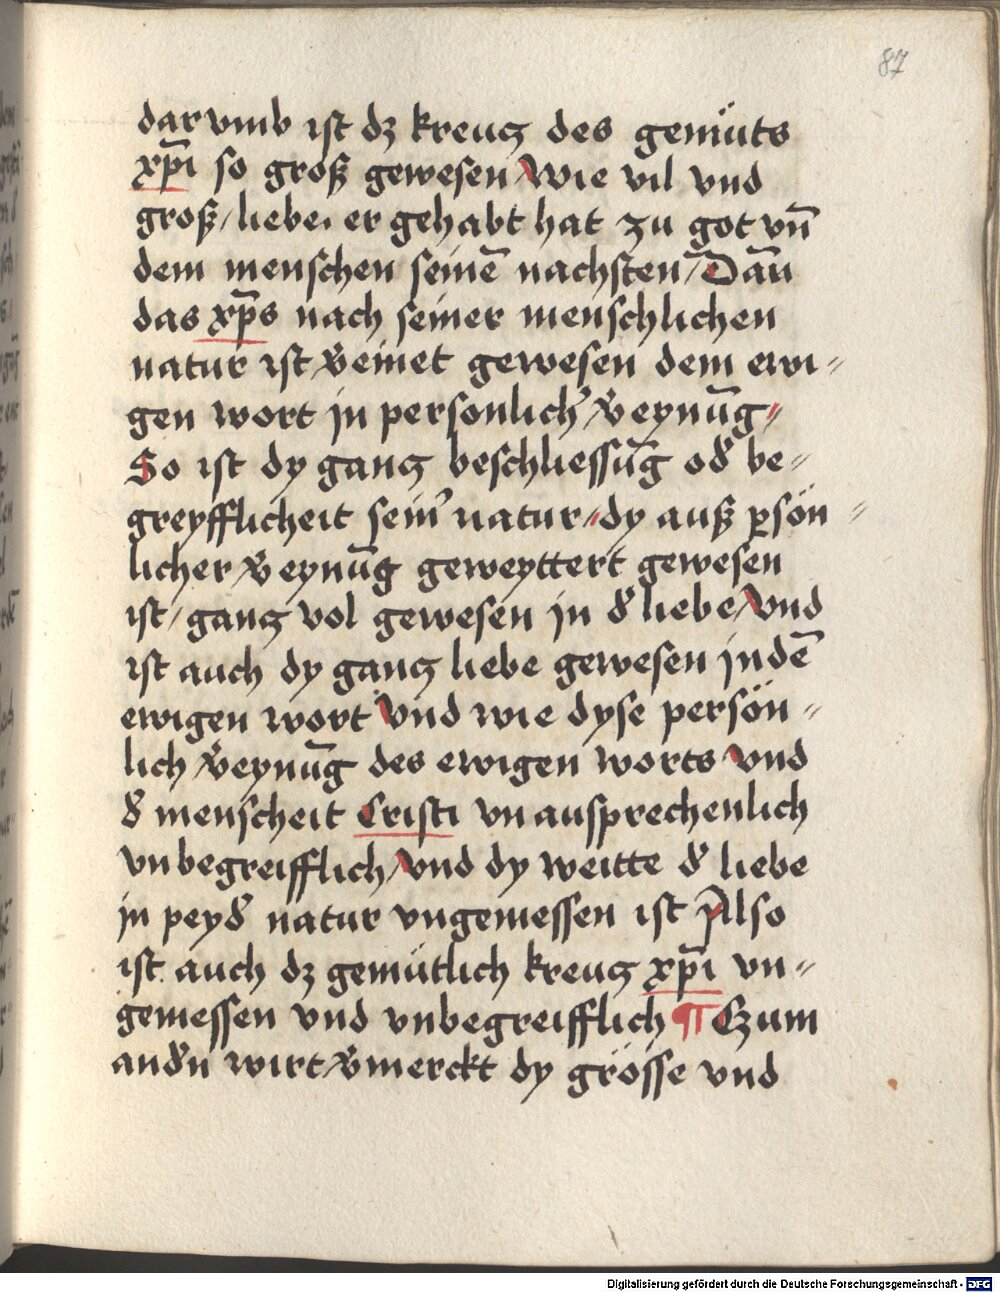 87
dar vmb ist dz kreucz des gemüts
xp̄i so groß gewesen Wie vil vnd
groß/ liebe er gehabt hat zu got vn̄
dem menschen seinē nachsten/ Dan̄
das xp̄s nach seiner menschlichen
natur ist v̄einet gewesen dem ewi⸗
gen wort jn personlicher v̄eynūg⸗
So ist dy gancz beschliessūg od̄ be⸗
greyfflicheit seiner natur⸗ dy auß ꝑsön⸗
licher v̄eynūg geweyttert gewesen
ist/ gancz vol gewesen jn d̄ liebe/ Vnd
ist auch dy gancz liebe gewesen jn dē
ewigen wort Vnd wie dyse persön⸗
lich v̄eynūg des ewigen worts vnd
d̄ menscheit Cristi vn ausprechenlich
vnbegreifflich/ Vnd dy weitte d̄ liebe
jn peyd̄ natur vngemessen ist Also
ist auch dz gemütlich kreucz xp̄i vn⸗
gemessen vnd vnbegreifflich ¶ Czum
and̄n wirt v̄merckt dy grösse vnd
Digitalisierung gefördert durch die Deutsche Forschungsgemeinschaft - DFG